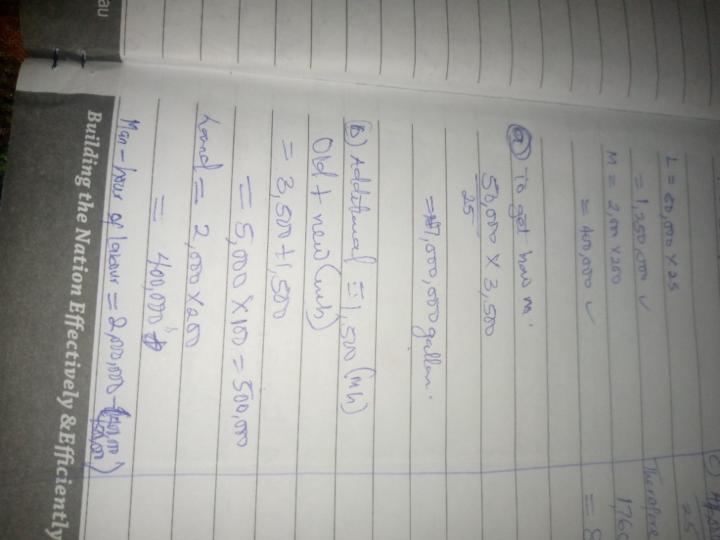 au
L = 50,000 X 25
= 1,250,000 ✓
M = 2,000 X 200
= 400,000 ✓
(a) To get how m.
50,000 X 3,500
25
= 7,000,000 gallon.
(b) Additional = 1,500 (mh)
Old + new (mh)
= 3,500 + 1,500
= 5,000 X 100 = 500,000
Land = 2,000 X 200
= 400,000
Man - hour of labour = 2,000,000 -
Building the Nation Effectively & Efficiently
Therefore
1,760
= 8
25